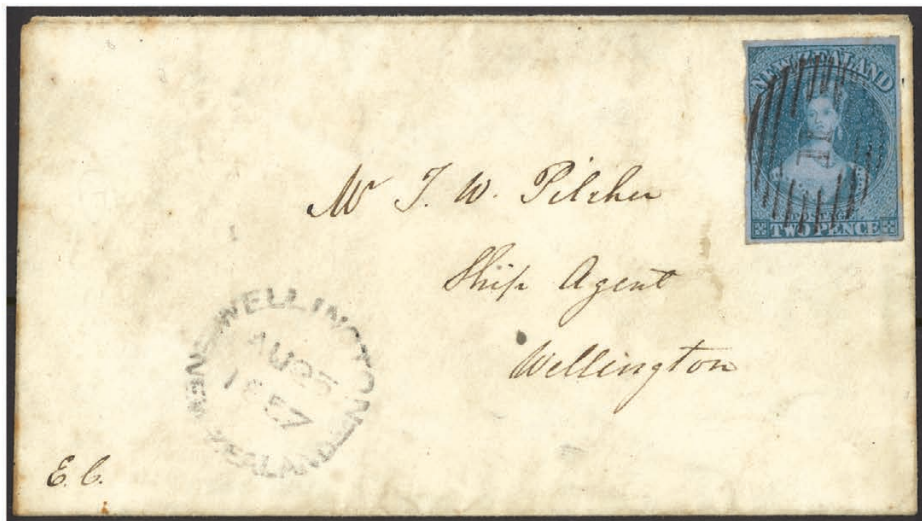 NEW ZEALAND
POSTAGE
TWO PENCE
Mr T. W. Pilcher
Ship Agent
Wellington
WELLINGTON
AU 25
1857
NEW ZEALAND
E. C.